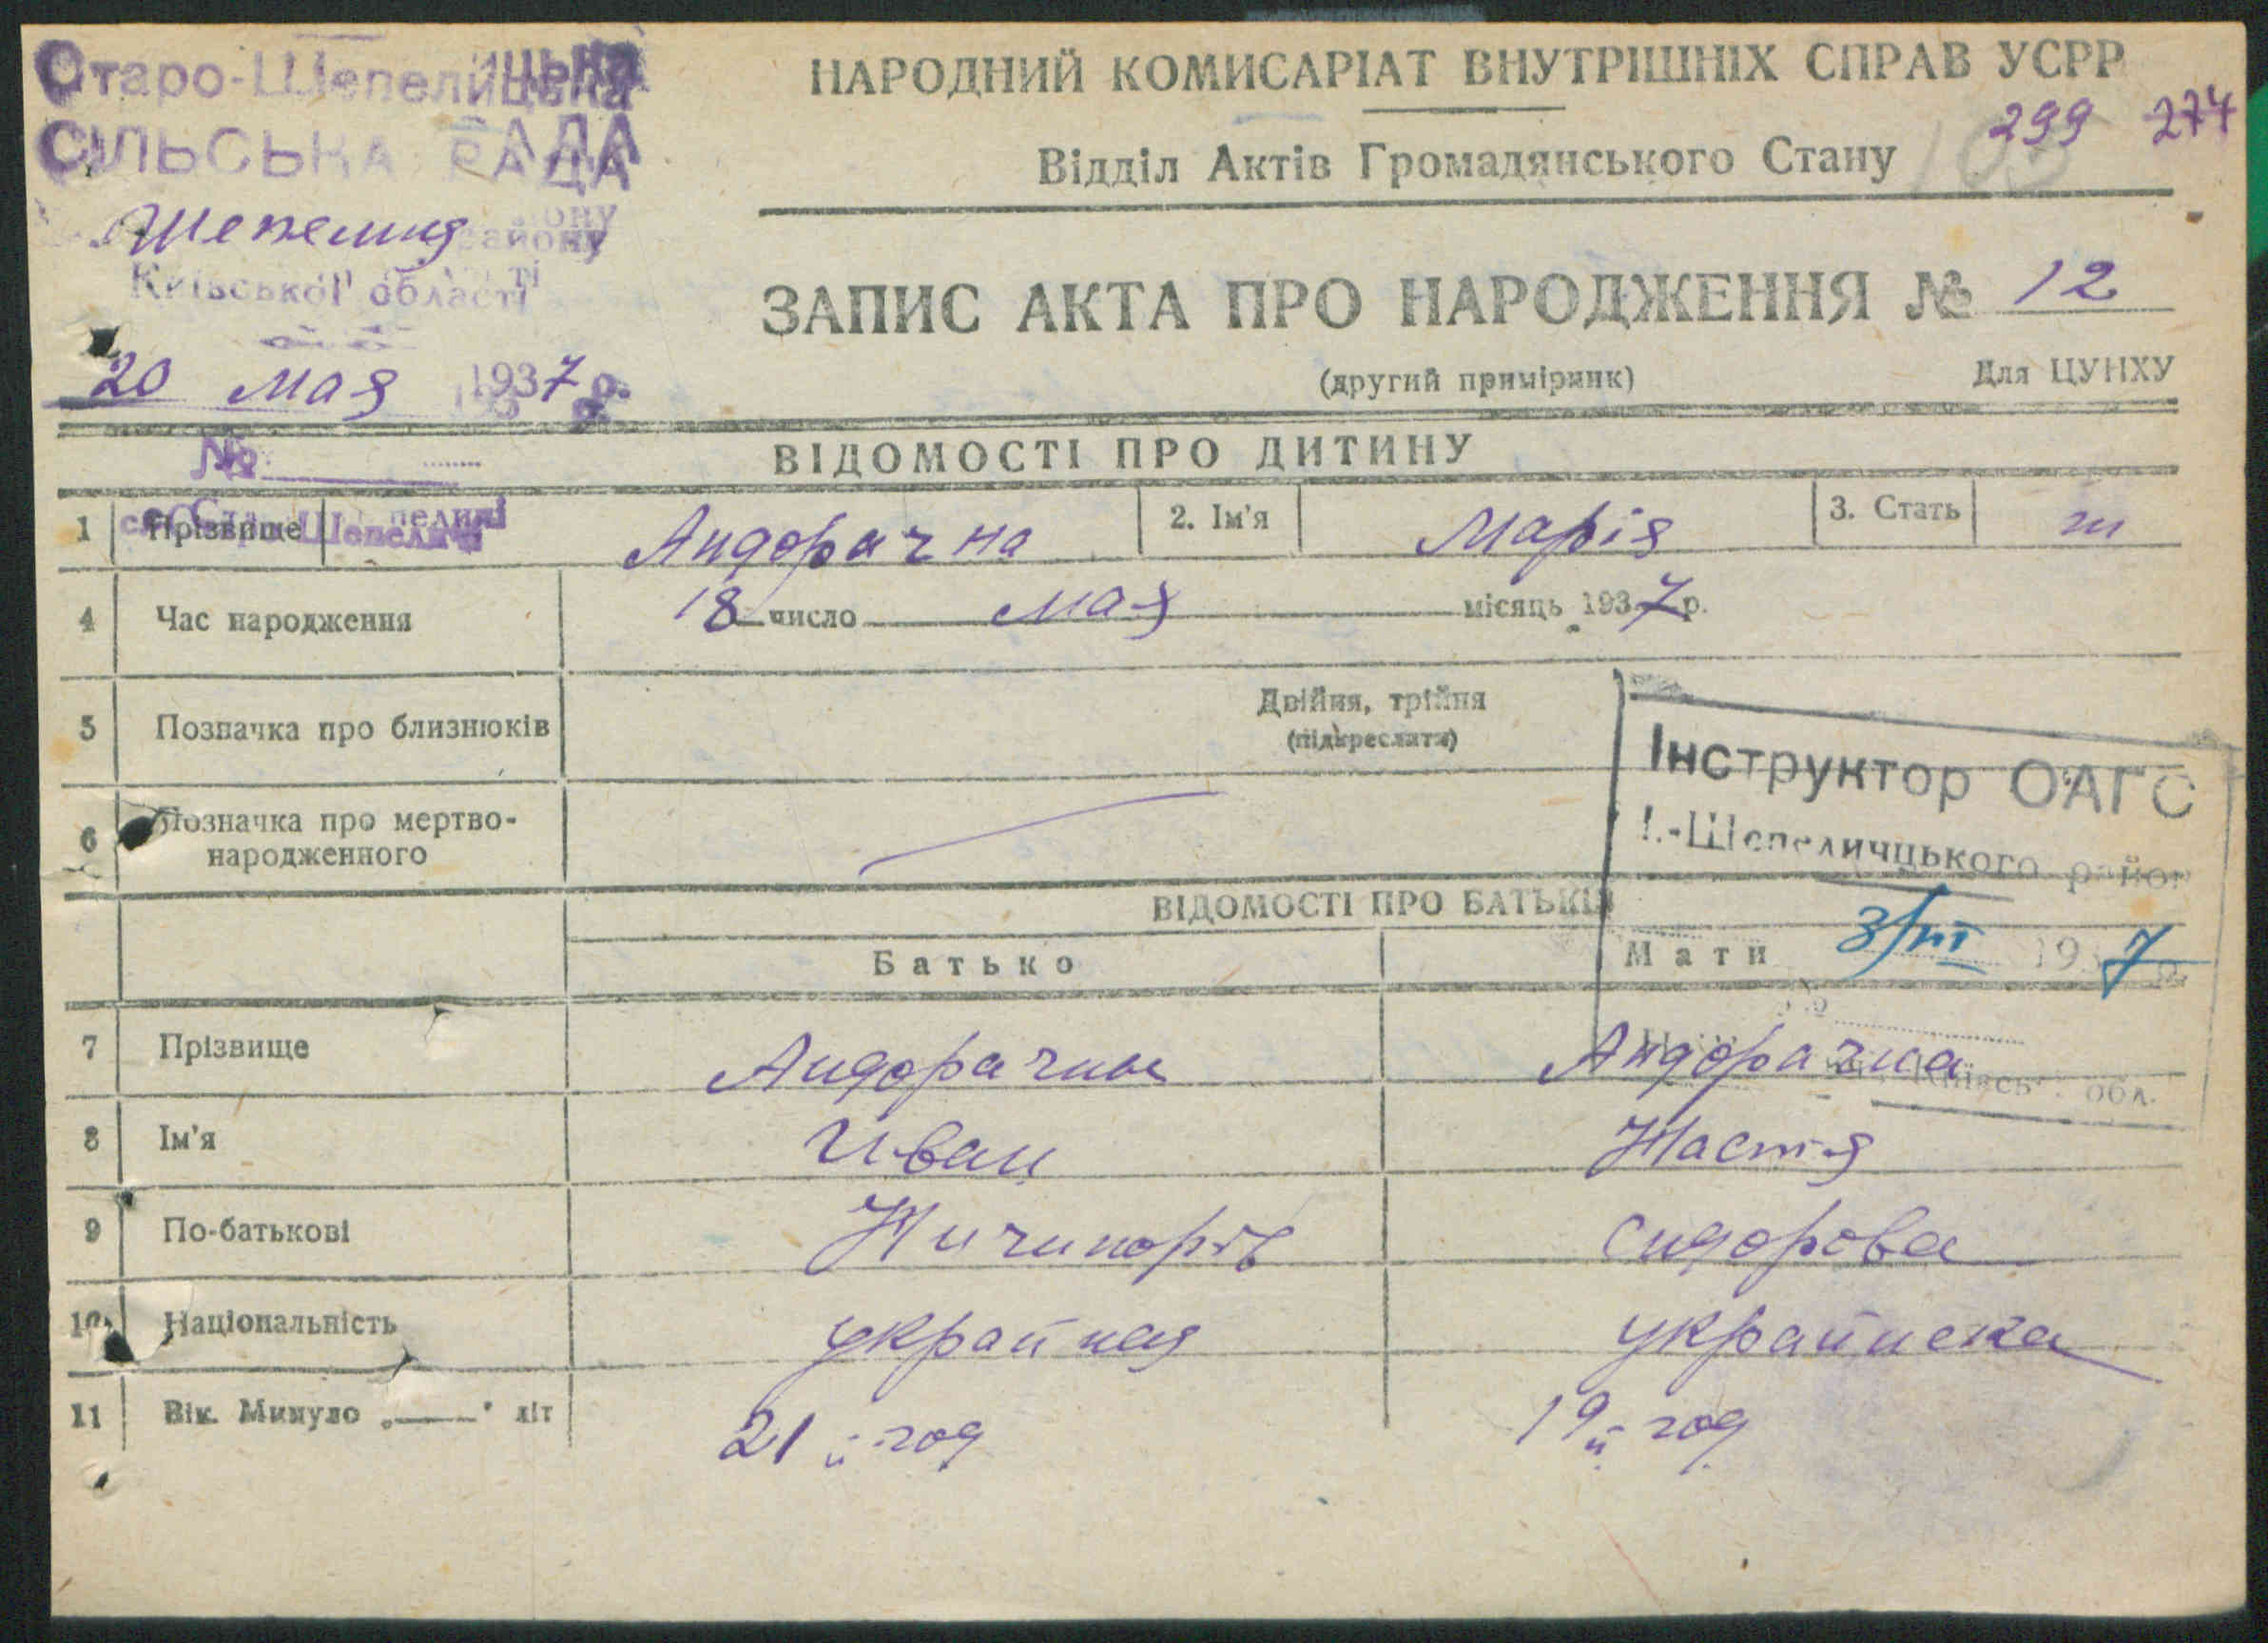 Старо-Шепелицька
СІЛЬСЬКА РАДА
району
Київської області
20 мая 1937 р.
№
НАРОДНИЙ КОМИСАРІАТ ВНУТРІШНІХ СПРАВ УСРР
299 274
Відділ Актів Громадянського Стану
ЗАПИС АКТА ПРО НАРОДЖЕННЯ № 12
(другий примірник) Для ЦУНХУ
ВІДОМОСТІ ПРО ДИТИНУ
1 Прізвище Андорачна 2. Ім'я Марія 3. Стать
4 Час народження 18 число мая місяць 1937 р.
5 Позначка про близнюків Двійня, трійня
(підкреслити)
Інструктор ОАГС
Шепеличцького район
6 Позначка про мертво-
народженного
ВІДОМОСТІ ПРО БАТЬКІВ
Батько Мати
3/III 1937 р.
7 Прізвище Андорачны Андорачна
Київськ. обл.
8 Ім'я Иван Настія
9 По-батькові Ничипорів Сидорова
10 Національність украйнец украйнска
11 Вік. Минуло „——" літ 21й год 19й год